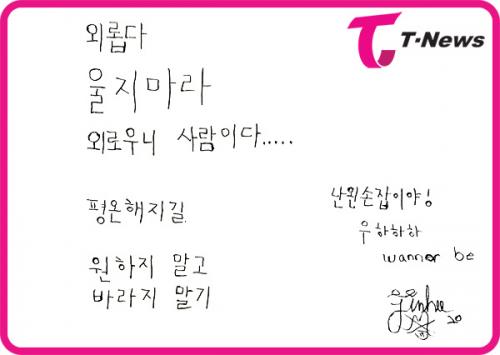 T-News
외롭다
울지마라
외로우니 사람이다.....
평온해지길
원하지 말고
바라지 말기
난 왼손잡이야!
우하하하
wanner be
Jinhee
20